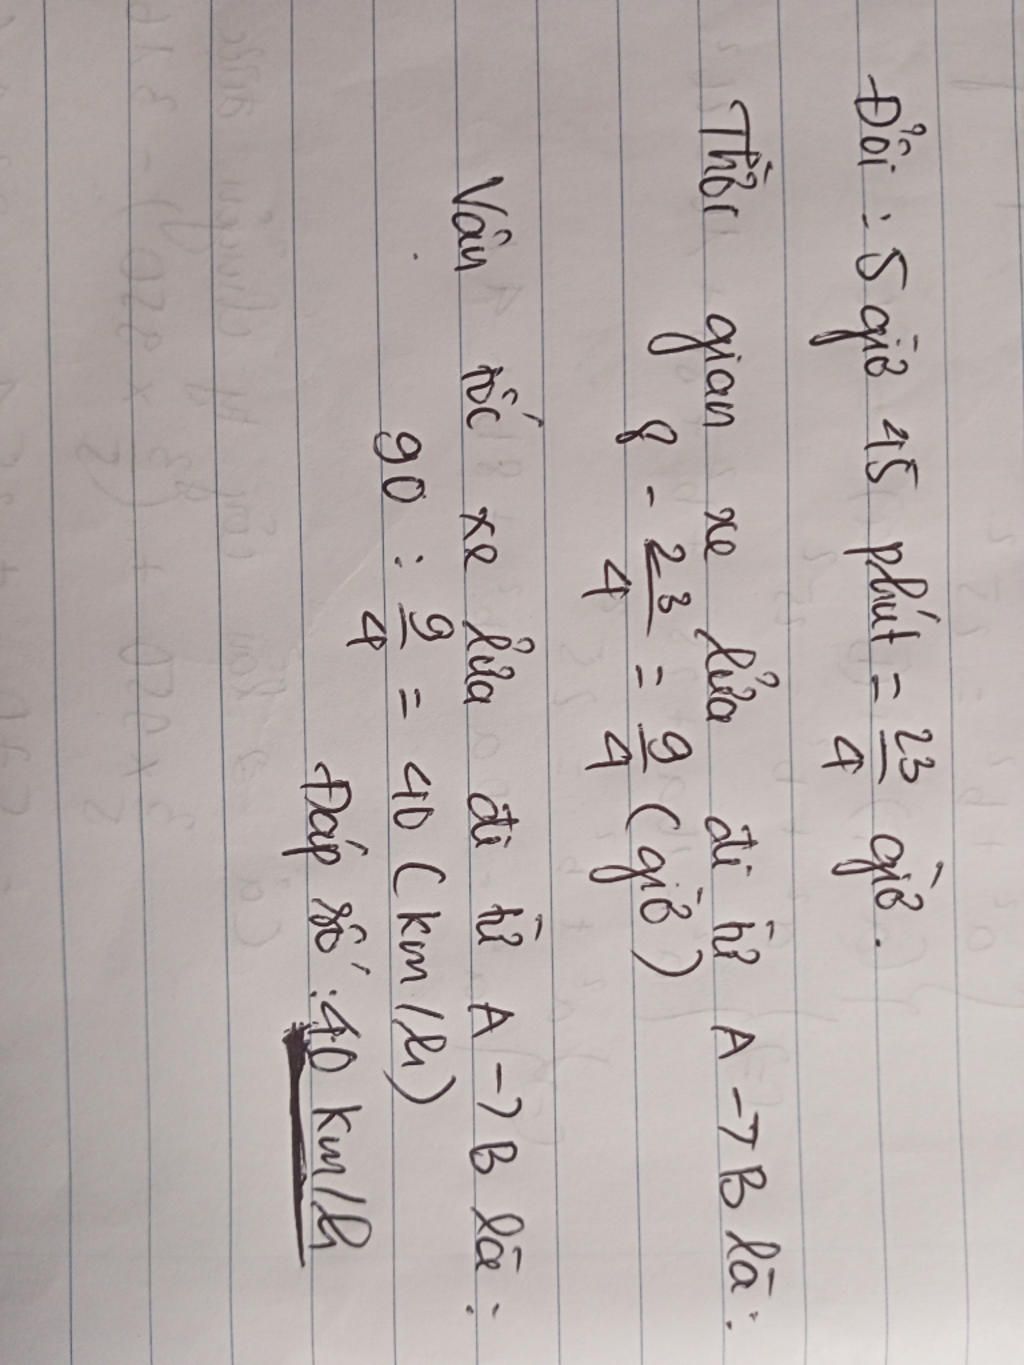 Đổi : 5 giờ 45 phút = 23/4 giờ.
Thời gian xe lửa đi từ A → B là :
8 - 23/4 = 9/4 (giờ)
Vân tốc xe lửa đi từ A → B là :
90 : 9/4 = 40 (km/h)
Đáp số : 40 km/h